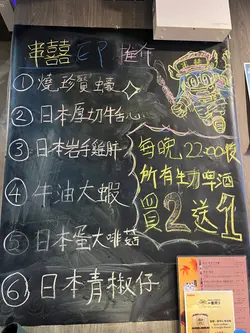 串囍 EP 推介
① 燒珍寶蠔
② 日本厚切牛心
③ 日本岩手雞肝
④ 牛油大蝦
⑤ 日本蛋大啡菇
⑥ 日本青椒仔
每晚22:00後
所有生力啤酒
買2送1